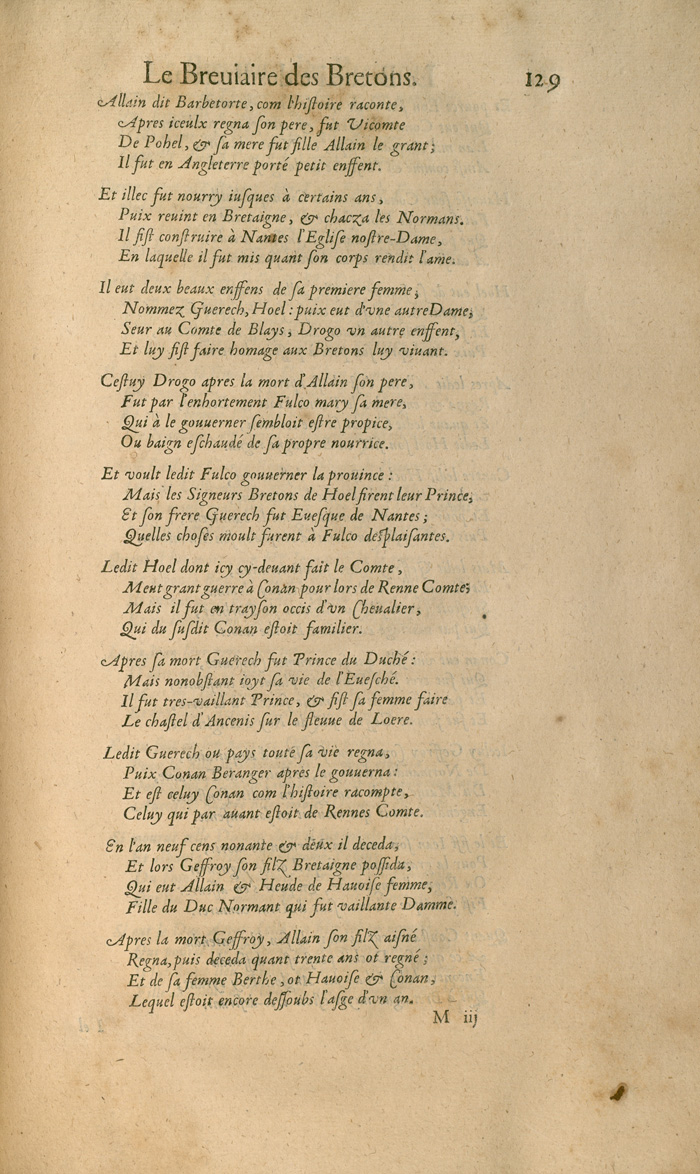 Le Breuiaire des Bretons. 129
Allain dit Barbetorte, com l'hiſtoire raconte,
Apres iceulx regna ſon pere, fut Vicomte
De Pohel, & ſa mere fut fille Allain le grant;
Il fut en Angleterre porté petit enffent.
Et illec fut nourry iuſques à certains ans,
Puix reuint en Bretaigne, & chacza les Normans.
Il fiſt conſtruire à Nantes l'Egliſe noſtre-Dame,
En laquelle il fut mis quant ſon corps rendit l'ame.
Il eut deux beaux enffens de ſa premiere femme,
Nommez Guerech, Hoel: puix eut d'vne autre Dame,
Seur au Comte de Blays, Drogo vn autre enffent,
Et luy fiſt faire homage aux Bretons luy viuant.
Ceſtuy Drogo apres la mort d'Allain ſon pere,
Fut par l'enhortement Fulco mary ſa mere,
Qui à le gouuerner ſembloit eſtre propice,
Ou baign eſchaudé de ſa propre nourrice.
Et voult ledit Fulco gouuerner la prouince:
Mais les Signeurs Bretons de Hoel firent leur Prince,
Et ſon frere Guerech fut Eueſque de Nantes;
Quelles choſes moult furent à Fulco deſplaiſantes.
Ledit Hoel dont icy cy-deuant fait le Comte,
Meut grant guerre à Conan pour lors de Renne Comte;
Mais il fut en trayſon occis d'vn Cheualier,
Qui du ſuſdit Conan eſtoit familier.
Apres ſa mort Guerech fut Prince du Duché:
Mais nonobſtant ioyt ſa vie de l'Eueſché.
Il fut tres-vaillant Prince, & fiſt ſa femme faire
Le chaſtel d'Ancenis ſur le fleuue de Loere.
Ledit Guerech ou pays toute ſa vie regna,
Puix Conan Beranger apres le gouuerna:
Et eſt celuy Conan com l'hiſtoire racompte,
Celuy qui par auant eſtoit de Rennes Comte.
En l'an neuf cens nonante & deux il deceda,
Et lors Geffroy ſon filz Bretaigne poſſida,
Qui eut Allain & Heude de Hauoiſe femme,
Fille du Duc Normant qui fut vaillante Damme.
Apres la mort Geffroy, Allain ſon filz aiſné
Regna, puis deceda quant trente ans ot regné;
Et de ſa femme Berthe, ot Hauoiſe & Conan,
Lequel eſtoit encore deſſoubs l'aſge d'vn an.
M iij